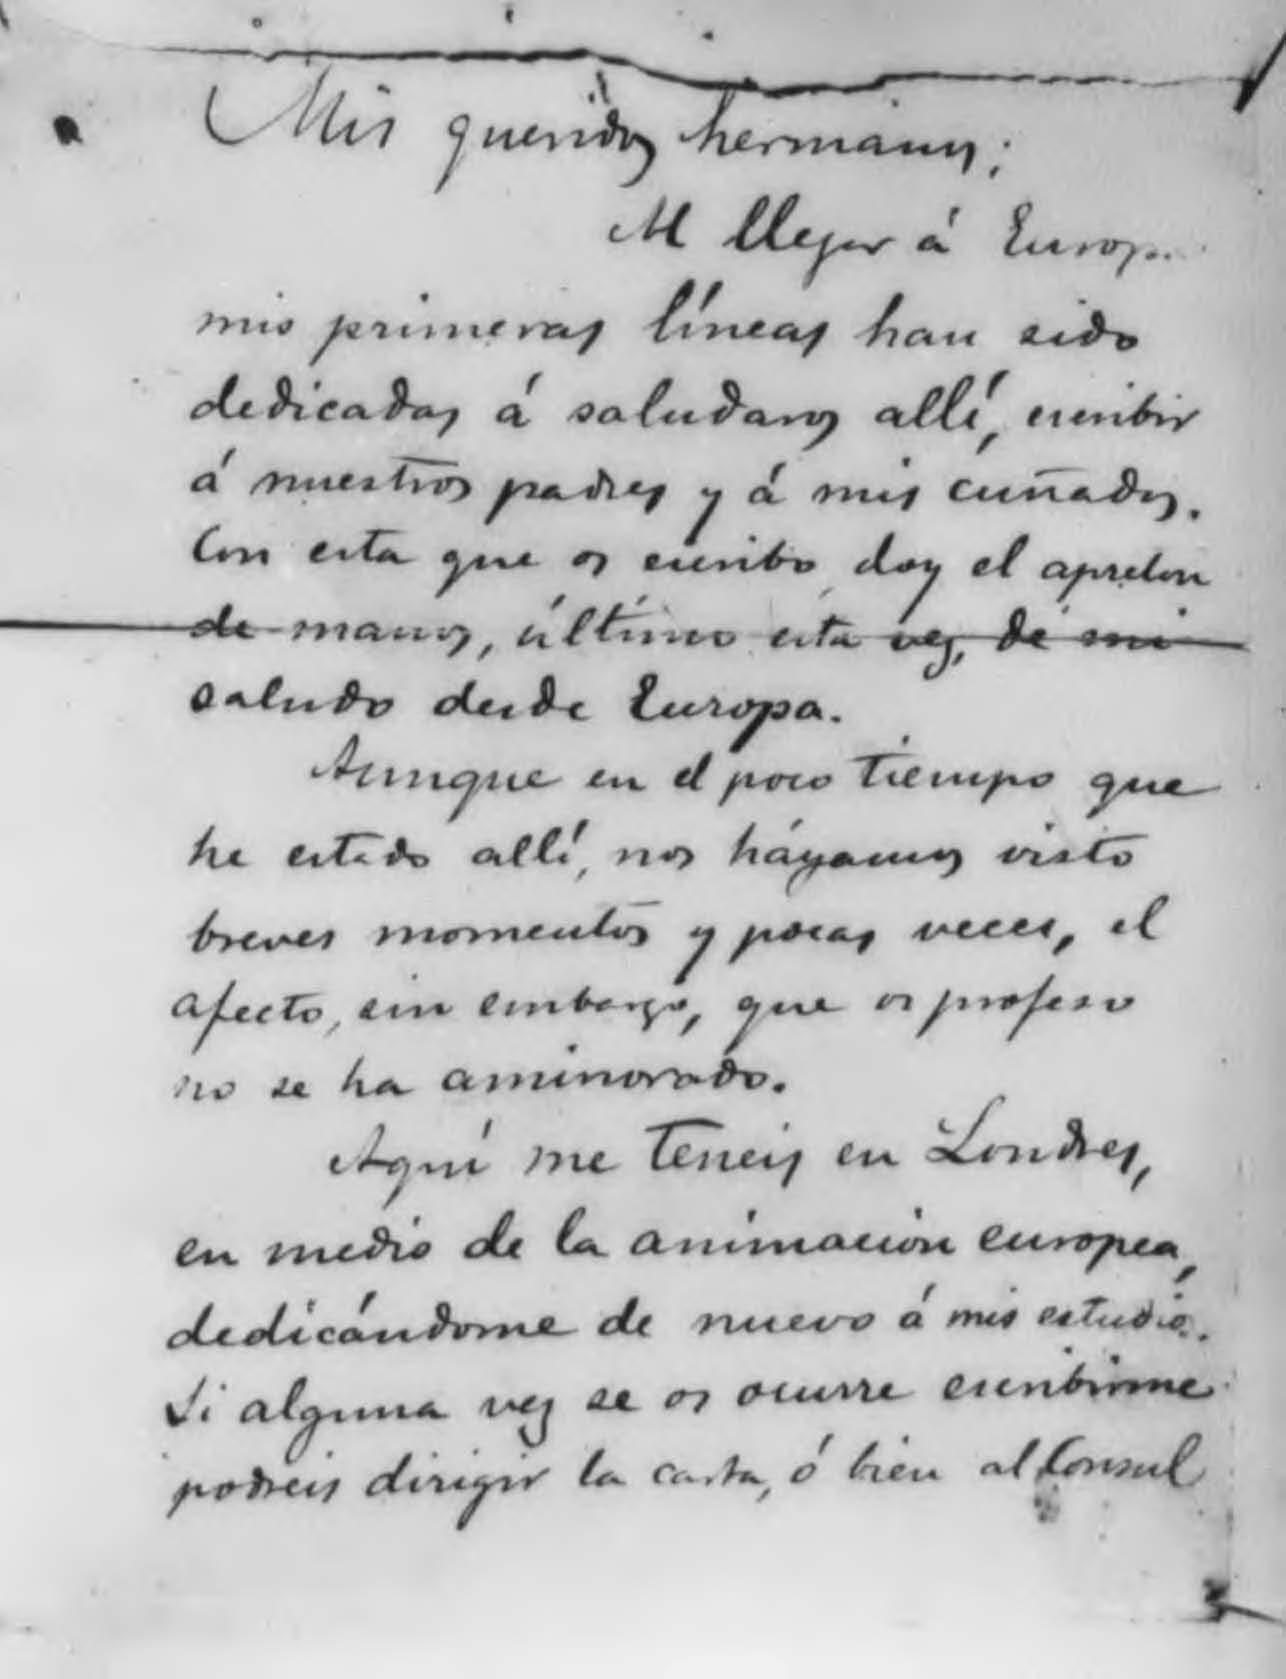 Mis queridos hermanos;
Al llegar á Europa
mis primeras líneas han sido
dedicadas á saludaros allí, escribir
á nuestros padres y á mis cuñados.
Con esta que os escribo doy el apreton
de manos, último esta vez, de mi
saludo desde Europa.
Aunque en el poco tiempo que
he estado allí, nos háyamos visto
breves momentos y pocas veces, el
afecto, sin embargo, que os profeso
no se ha aminorado.
Aquí me teneis en Londres,
en medio de la animacion europea,
dedicándome de nuevo á mis estudios.
Si alguna vez se os ocurre escribirme
podreis dirigir la carta, ó bien al Consul